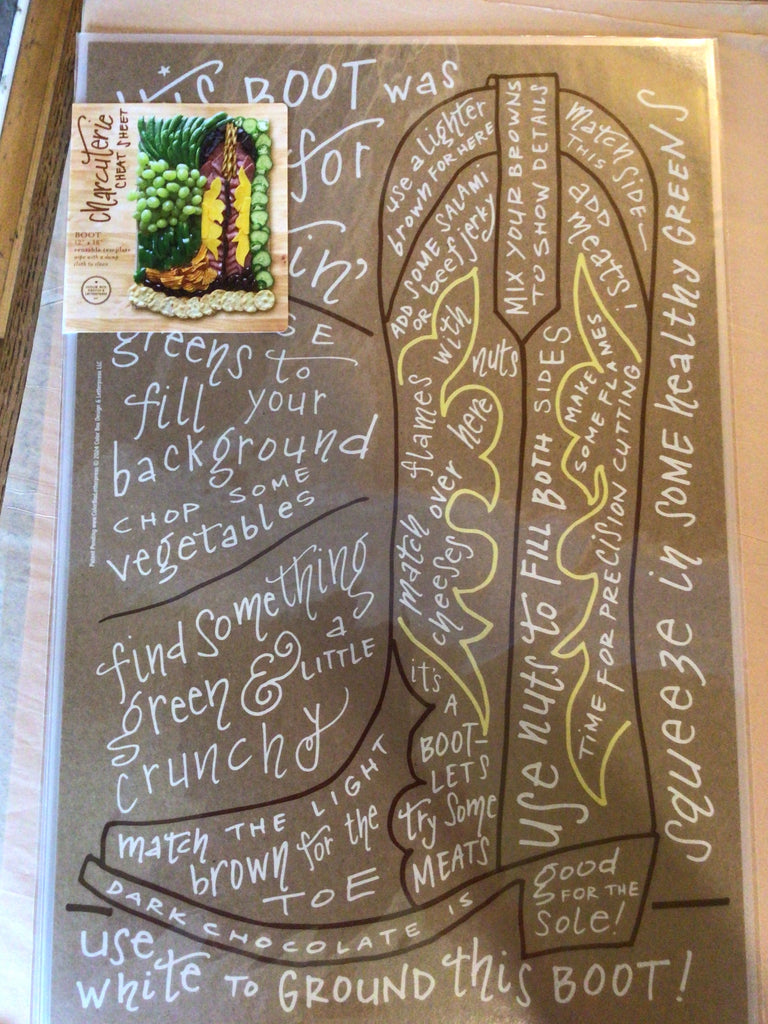 this BOOT was
for
in'
charcuterie
CHEAT SHEET
BOOT
12" x 18"
reusable template
wipe with a damp
cloth to clean
SE
greens to
fill your
background
CHOP SOME
vegetables
find something
green & a
LITTLE
crunchy
Patent Pending www.ColorBoxLetterpress © 2024 Color Box Design & Letterpress LLC
use a lighter
brown FOR HERE
ADD SOME SALAMI
OR beef jerky
MIX YOUR BROWNS
TO SHOW DETAILS
match SIDE
THIS
ADD
meats!
match flames with
cheeses over here
nuts
use nuts to FILL BOTH SIDES
MAKE
SOME FLAMES
TIME FOR PRECISION CUTTING
squeeze in SOME healthy GREENS
it's
A
BOOT-
LETS
try some
MEATS
match THE LIGHT
brown for the
TOE
DARK CHOCOLATE IS
good
FOR THE
Sole!
use
white TO GROUND this BOOT!